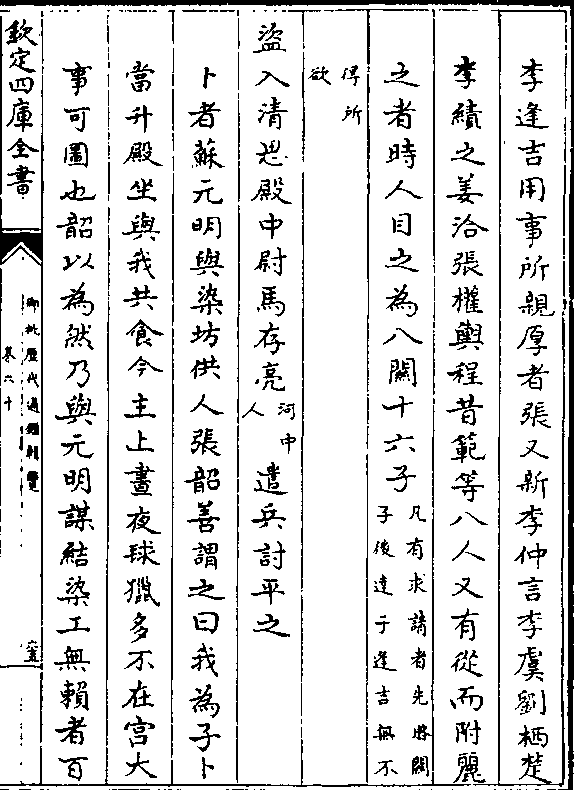 李逢吉用事所親厚者張又新李仲言李虞劉栖楚
李續之姜洽張權輿程昔範等八人又有從而附麗
之者時人目之為八關十六子凡有求請者先賂關子後達于逢吉無不
得所欲
盜入清思殿中尉馬存亮河中人遣兵討平之
卜者蘇元明與染坊供人張韶善謂之曰我為子卜
當升殿坐與我共食今主上晝夜球獵多不在宫大
事可圖也韶以為然乃與元明謀結染工無賴者百
欽定四庫全書
御批歷代通鑑輯覽
卷六十
六五